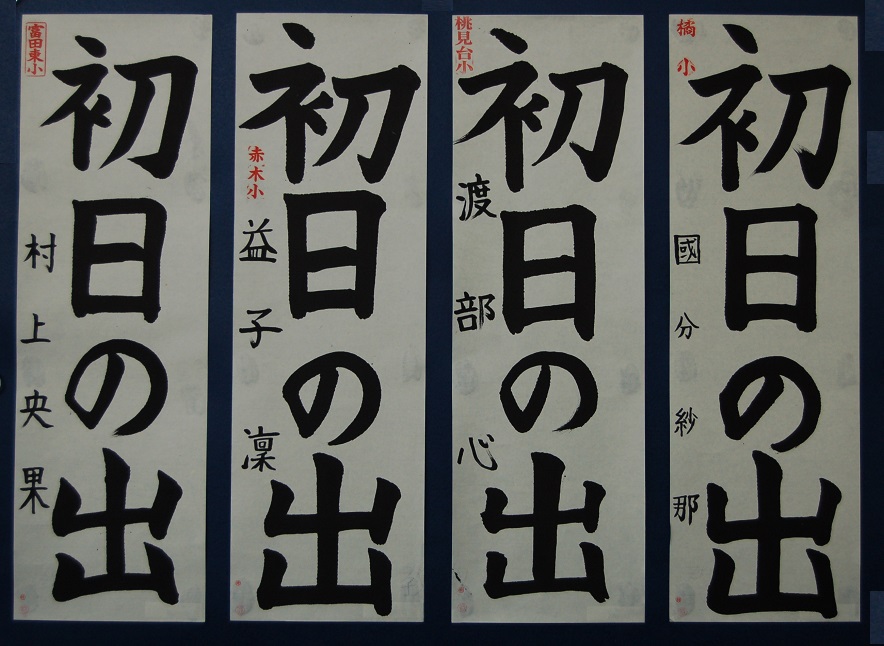 橘小
初日の出
國分紗那
桃見台小
初日の出
渡部心
赤木小
初日の出
益子凜
富田東小
初日の出
村上央果